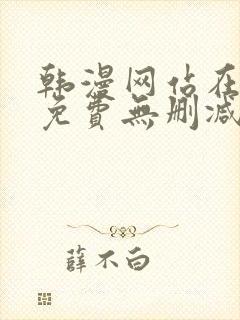 韩漫网站在
免費無删减
薛不白